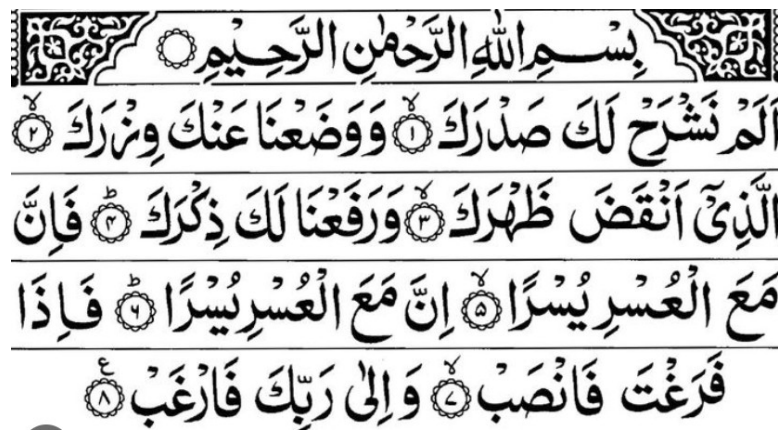 بِسْمِ اللّٰهِ الرَّحْمٰنِ الرَّحِيْمِ
اَلَمْ نَشْرَحْ لَكَ صَدْرَكَ ۙ‏﴿۱﴾ وَوَضَعْنَا عَنْكَ وِزْرَكَ ۙ‏﴿۲﴾
الَّذِیْۤ اَنْقَضَ ظَهْرَكَ ۙ‏﴿۳﴾ وَرَفَعْنَا لَكَ ذِكْرَكَ ؕ‏﴿۴﴾ فَاِنَّ
مَعَ الْعُسْرِ يُسْرًا ۙ‏﴿۵﴾ اِنَّ مَعَ الْعُسْرِ يُسْرًا ؕ‏﴿۶﴾ فَاِذَا
فَرَغْتَ فَانْصَبْ ۙ‏﴿۷﴾ وَاِلٰى رَبِّكَ فَارْغَبْ ﴿۸﴾ ع